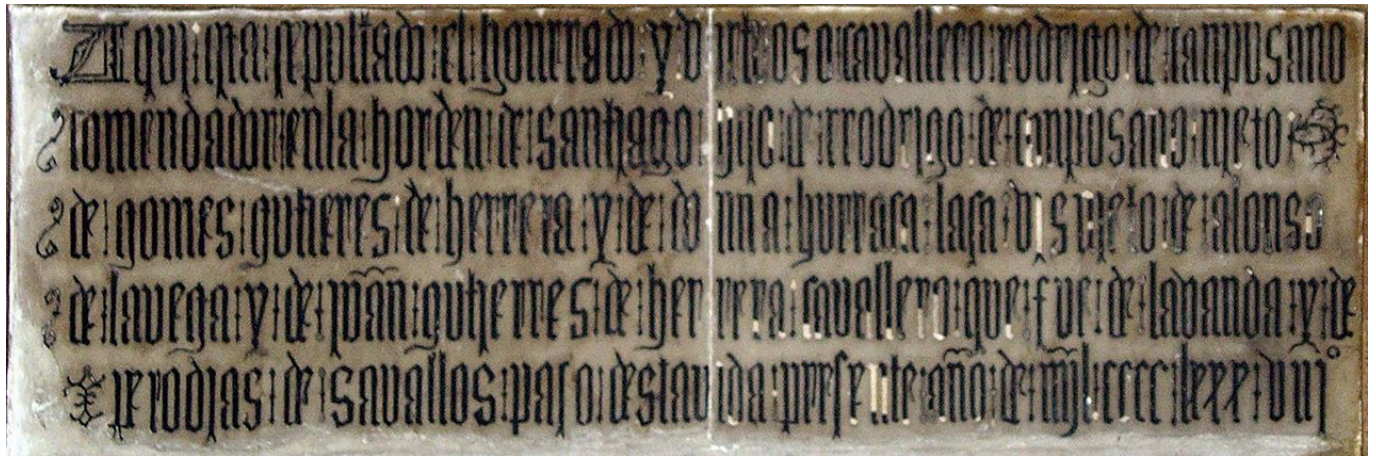 Aqui : esta : sepultado : el : honrrado : y : birtuoso : cavallero : rodrigo : de : campusano
comendador : en la : horden : de : santiago : hijo : de : rrodrigo : de : campusano : nieto :
de : gomes : gutieres : de : herrera : y : de : donna : hurraca : lasa : nieto : de : alonso
de : la vega : y : de : juan : gutierres : de : herrera : cavallero : que : fue : de : la vanda : y : de
pero dias : de : savallos : paso : desta vida : presente : año : de : mjl : cccc : lxxx : viij